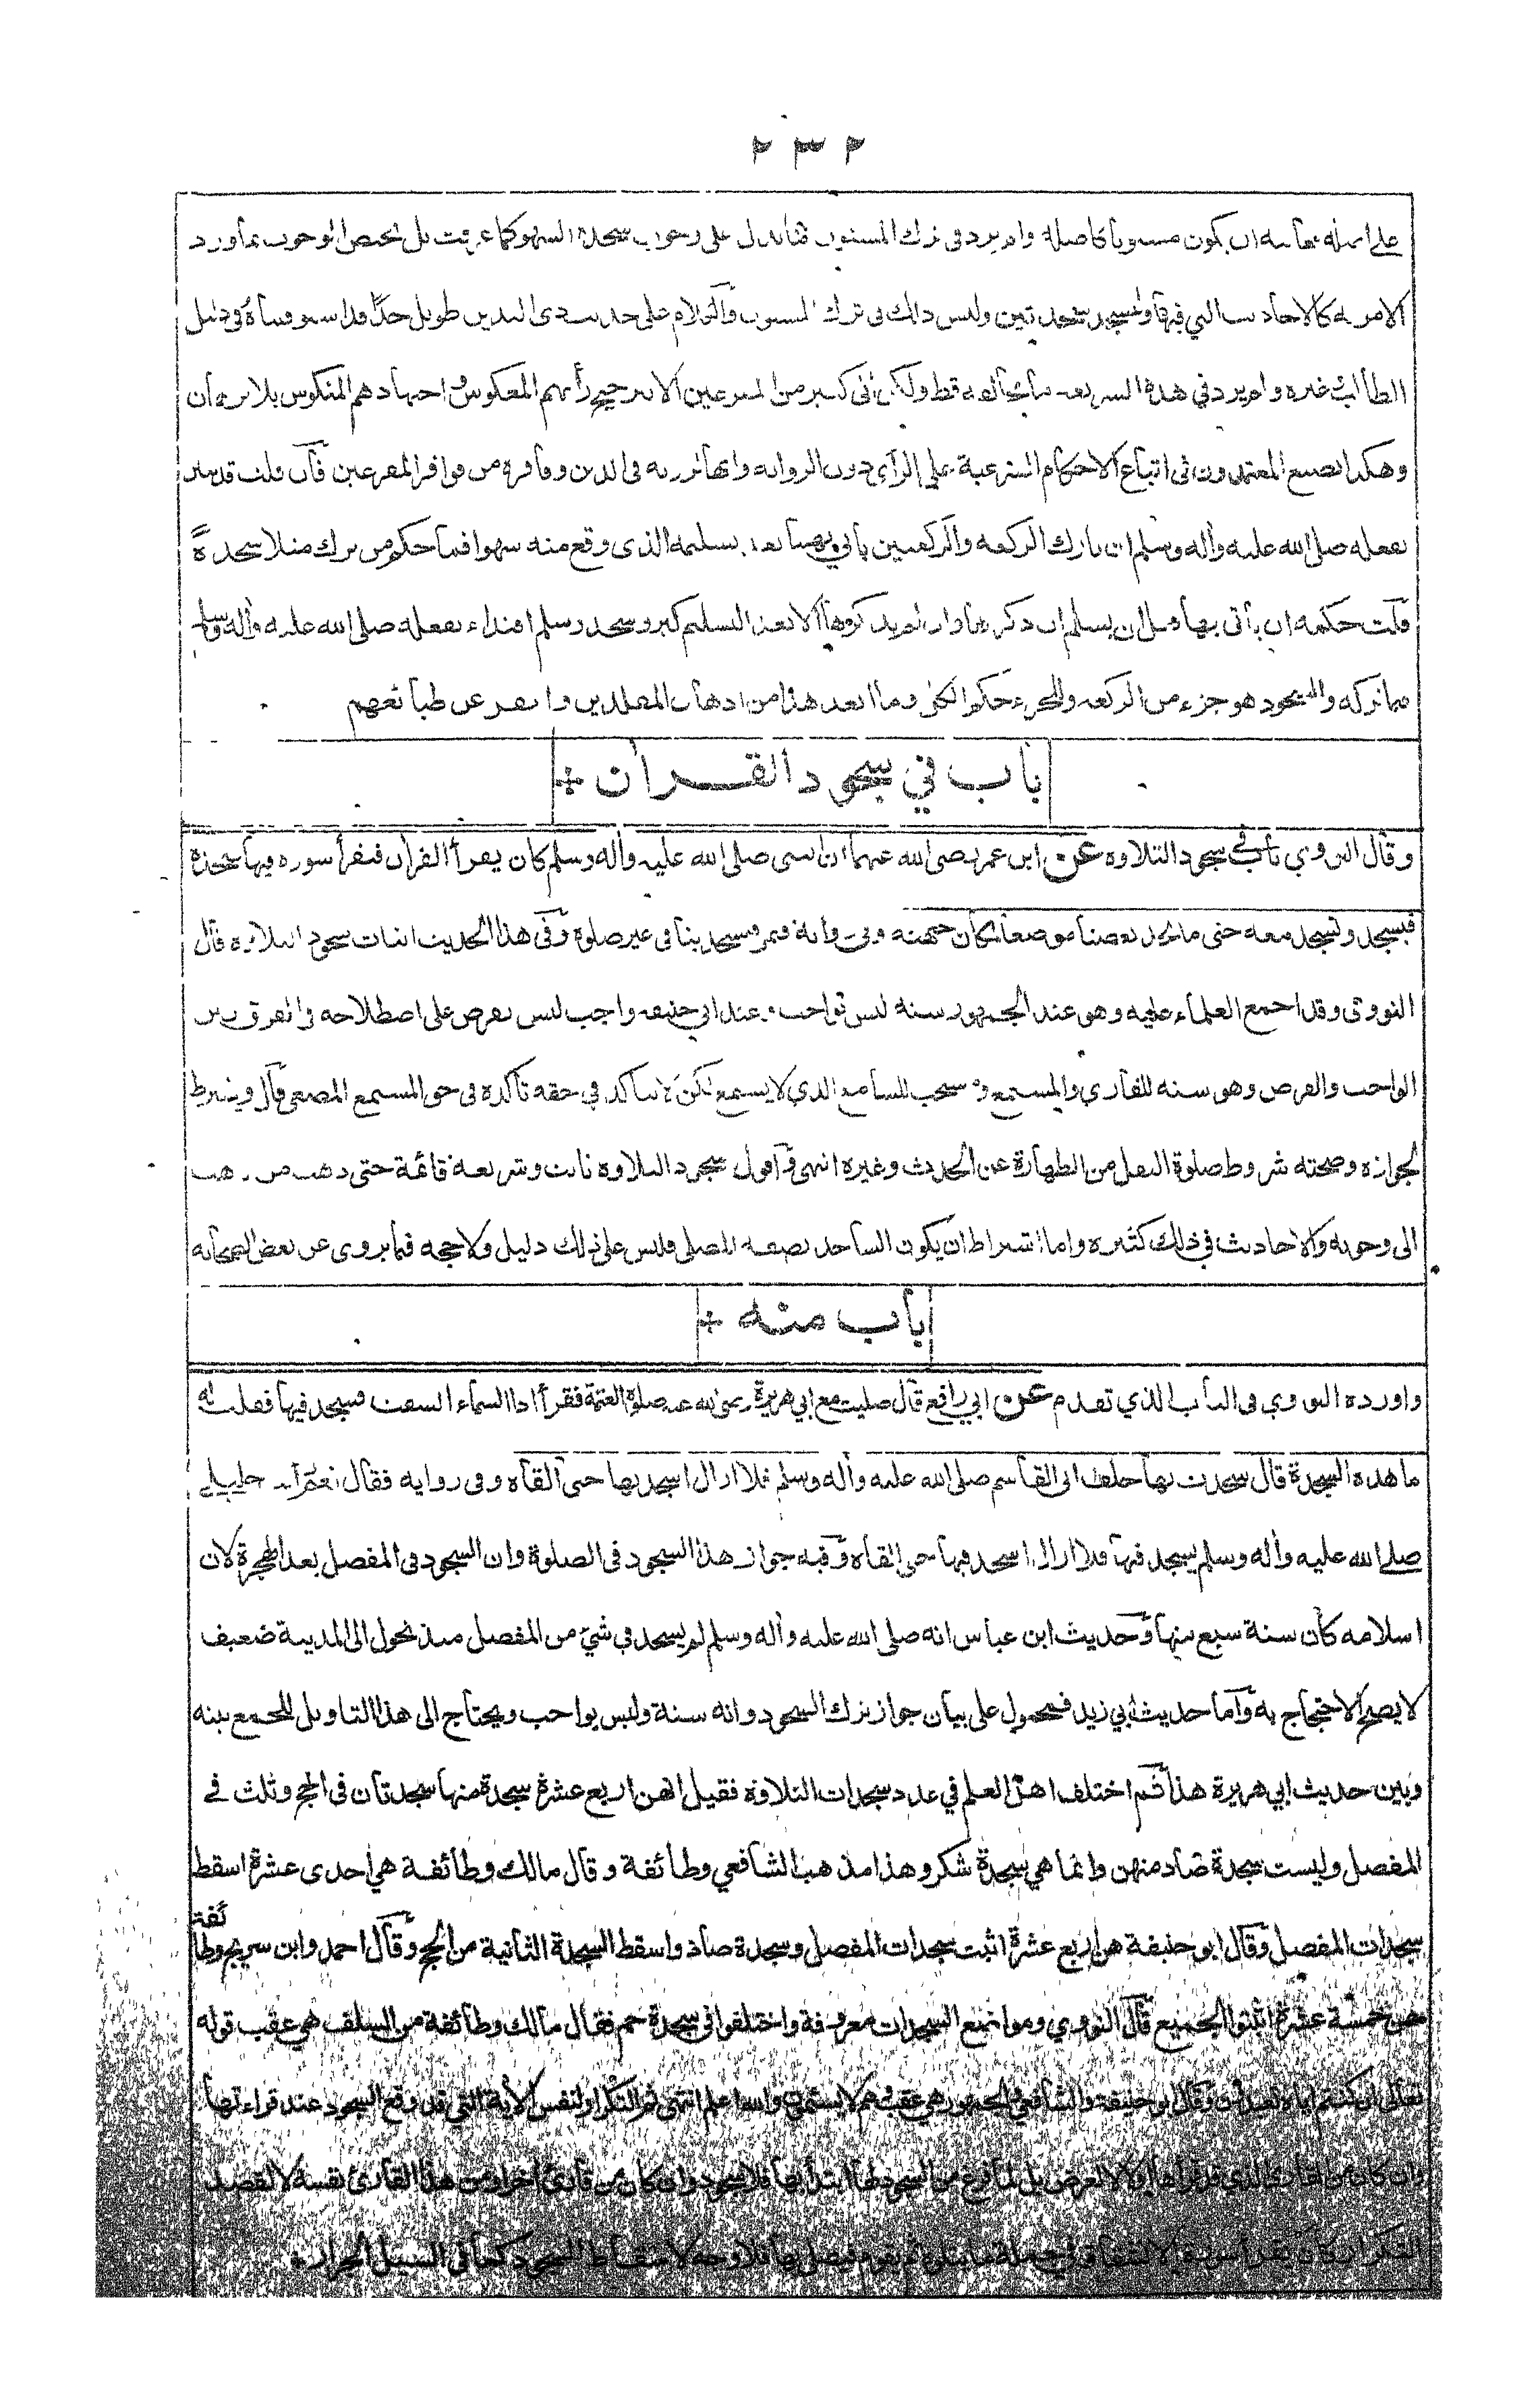 ٢٣٢
على اصله بعد ان يكون مسنونا كاصله ولم يرد في ترك المسنون ما يدل على وجوب سجدة السهو كما عرفت بل يختص الوجوب بما ورد
الامر به كالاحاديث التي فيها وليسجد سجدتين وليس ذلك في ترك المسنون والكلام على حديث ذي اليدين طويل جدا قد استوفيناه في دليل
الطالب غيره ولم يرد في هذه الشريعة قط ولكن كثير من المفرعين الا ترجيح رأيهم المعكوس واجتهادهم المنكوس
وهكذا يصنع المعتمدون في اتباع الاحكام الشرعية على الرأي دون الرواية في الدين من المفرعين فان قلت قد
بفعله صلى الله عليه وأله وسلم ان تارك الركعة والركعتين يأتي بهما بعد تسليمه الذي وقع منه سهوا فما حكم من ترك مثلا سجدة
قلت حكمه ان يأتي بها قبل ان يسلم ان ذكرها وان لم يذكرها الا بعد التسليم كبر وسجد وسلم اقتداء بفعله صلى الله عليه وأله وسلم
فيما تركه والسجود هو جزء من الركعة وللجزء حكم الكل وما ابعد هذا من اذهان المقلدين وانفر عن طبائعهم
باب في سجود القرأن
وقال النووي باب في سجود التلاوة عن ابن عمر رضي الله عنهما ان النبي صلى الله عليه وأله وسلم كان يقرأ القرأن فيقرأ سورة فيها سجدة
فيسجد ونسجد معه حتى ما يجد بعضنا موضعا لمكان جبهته وفي رواية فيمر فيسجد بنا في غير صلوة وفي هذا الحديث اثبات سجود التلاوة قال
النووي وقد اجمع العلماء عليه وهو عند الجمهور سنة ليس بواجب وعند ابي حنيفة واجب ليس بفرض على اصطلاحه في الفرق بين
الواجب والفرض وهو سنة للقاري والمستمع ومستحب للسامع الذي لا يستمع لكن لا يتأكد في حقه تأكده في حق المستمع المصغي قال ويشترط
لجوازه وصحته شروط صلوة النفل من الطهارة عن الحدث وغيره انتهى واقول سجود التلاوة ثابت وشريعة قائمة حتى ذهب من ذهب
الى وجوبه والاحاديث في ذلك كثيرة واما اشتراط ان يكون الساجد بصفة المصلي فليس على ذلك دليل ولا حجة فيما يروى عن بعض الصحابة
باب منه
واورده النووي في الباب الذي تقدم عن ابي رافع قال صليت مع ابي هريرة رضي الله عنه صلوة العتمة فقرأ اذا السماء انشقت فسجد فيها فقلت له
ما هذه السجدة قال سجدت بها خلف ابي القاسم صلى الله عليه وأله وسلم فلا ازال اسجد بها حتى القاه وفي رواية فقال نعم رأيت خليلي
صلى الله عليه وأله وسلم يسجد فيها فلا ازال اسجد فيها حتى القاه وفيه جواز هذا السجود في الصلوة وان السجود في المفصل بعد الهجرة لان
اسلامه كان سنة سبع منها وحديث ابن عباس انه صلى الله عليه وأله وسلم لم يسجد في شيء من المفصل منذ تحول الى المدينة ضعيف
لا يصح الاحتجاج به واما حديث ابي زيد فمحمول على بيان جواز ترك السجود وانه سنة وليس بواجب ويحتاج الى هذا التاويل للجمع بينه
وبين حديث ابي هريرة هذا ثم اختلف اهل العلم في عدد سجدات التلاوة فقيل انهن اربع عشرة سجدة منها سجدتان في الحج وثلث في
المفصل وليست سجدة صاد منهن وانما هي سجدة شكر وهذا مذهب الشافعي وطائفة وقال مالك وطائفة هي احدى عشرة اسقط
سجدات المفصل وقال ابو حنيفة هن اربع عشرة اثبت سجدات المفصل وسجدة صاد واسقط السجدة الثانية من الحج وقال احمد وابن سريج وطائفة
هن خمسة عشرة اثبتوا الجميع قال النووي ومواضع السجدات معروفة واختلفوا في سجدة حم فقال مالك وطائفة من السلف هي عقب قوله
تعالى ان كنتم اياه تعبدون وقال ابو حنيفة والشافعي والجمهور هي عقب وهم لا يسئمون والله اعلم انتهى ثم التكرار لنفس الأية التي قد وقع السجود عند قراءتها
وان كان من القارئ الذي قد قرأها اولا لا لغرض بل لما فرغ من السجود لها ابتدأ بها فلا سجود وان كان من قارئ أخر او من هذا القارئ نفسه لا لقصد
التكرار كأن يقرأ سورة الانشقاق في جملة ما يتلوه ثم يقوم فيصلي بها فلا وجه لاسقاط السجود كما في السيل الجرار